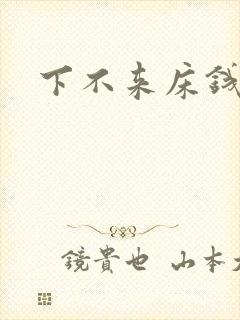 下不来床钱
鏡貴也 山本